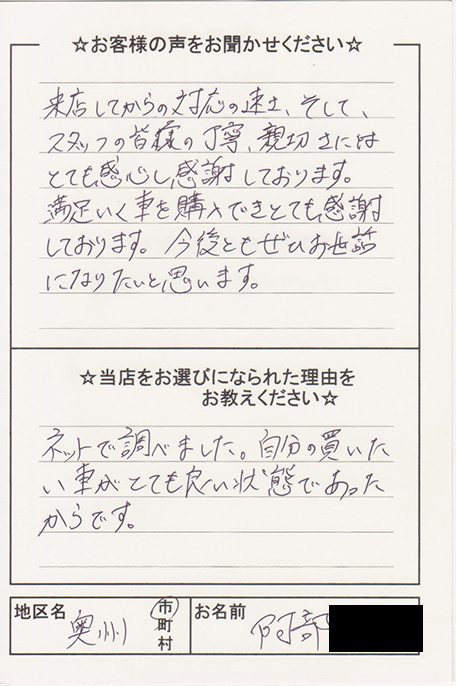 ☆お客様の声をお聞かせください☆
来店してからの対応の速さ、そして、
スタッフの皆様の丁寧、親切さには
とても感心し感謝しております。
満足いく車を購入できとても感謝
しております。今後ともぜひお世話
になりたいと思います。
☆当店をお選びになられた理由を
お教えください☆
ネットで調べました。自分の買いた
い車がとても良い状態であった
からです。
地区名 奥州 市町村 お名前 阿部